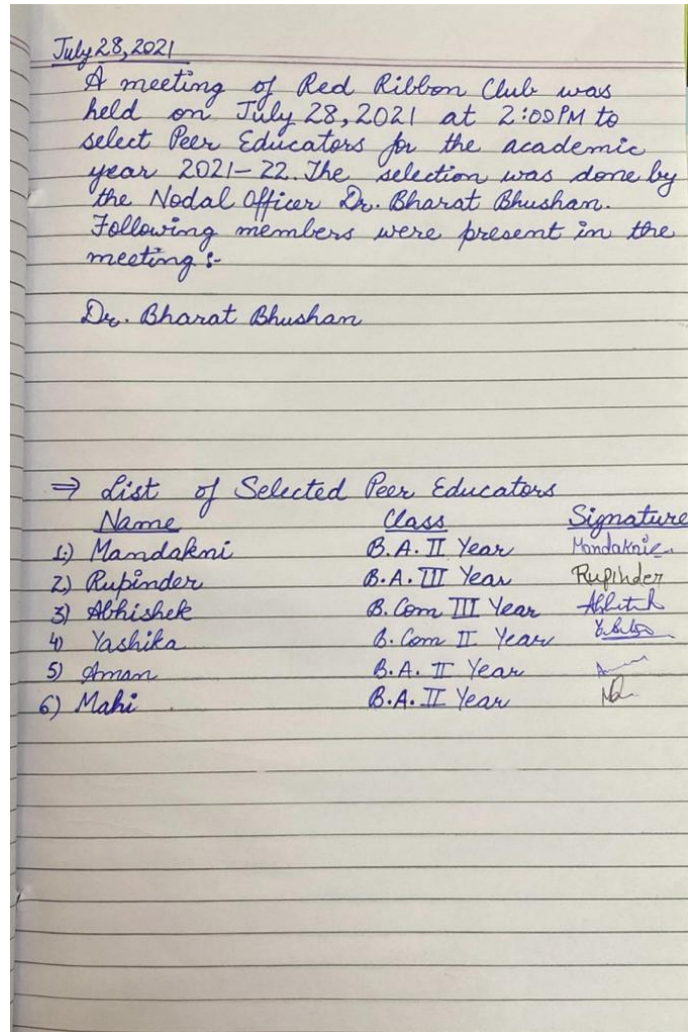 July 28, 2021
A meeting of Red Ribbon Club was
held on July 28, 2021 at 2:00 PM to
select Peer Educators for the academic
year 2021-22. The selection was done by
the Nodal Officer Dr. Bharat Bhushan.
Following members were present in the
meeting :-
Dr. Bharat Bhushan
⇒ List of Selected Peer Educators
Name Class Signature
1.) Mandakni B.A. II Year
2.) Rupinder B.A. III Year Rupinder
3) Abhishek B. Com III Year
4) Yashika B. Com II Year
5) Aman B.A. II Year
6) Mahi B.A. II Year